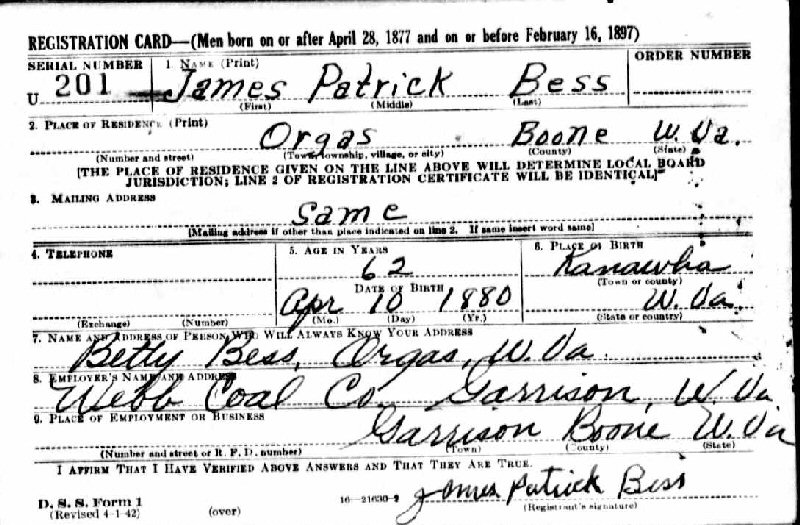 REGISTRATION CARD—(Men born on or after April 28, 1877 and on or before February 16, 1897)
SERIAL NUMBER 1. NAME (Print) ORDER NUMBER
U 201 James Patrick Bess
(First) (Middle) (Last)
2. PLACE OF RESIDENCE (Print)
Orgas Boone W. Va.
(Number and street) (Town, township, village, or city) (County) (State)
[THE PLACE OF RESIDENCE GIVEN ON THE LINE ABOVE WILL DETERMINE LOCAL BOARD
JURISDICTION; LINE 2 OF REGISTRATION CERTIFICATE WILL BE IDENTICAL]
3. MAILING ADDRESS
Same
[Mailing address if other than place indicated on line 2. If same insert word same]
4. TELEPHONE 5. AGE IN YEARS 6. PLACE OF BIRTH
62 Kanawha
DATE OF BIRTH (Town or county)
Apr 10 1880 W. Va.
(Exchange) (Number) (Mo.) (Day) (Yr.) (State or country)
7. NAME AND ADDRESS OF PERSON WHO WILL ALWAYS KNOW YOUR ADDRESS
Betty Bess, Orgas, W. Va.
8. EMPLOYER'S NAME AND ADDRESS
Webb Coal Co. Garrison, W. Va
9. PLACE OF EMPLOYMENT OR BUSINESS
Garrison Boone W. Va
(Number and street or R. F. D. number) (Town) (County) (State)
I AFFIRM THAT I HAVE VERIFIED ABOVE ANSWERS AND THAT THEY ARE TRUE.
James Patrick Bess
D. S. S. Form 1 16—21630-2 (Registrant's signature)
(Revised 4-1-42) (over)